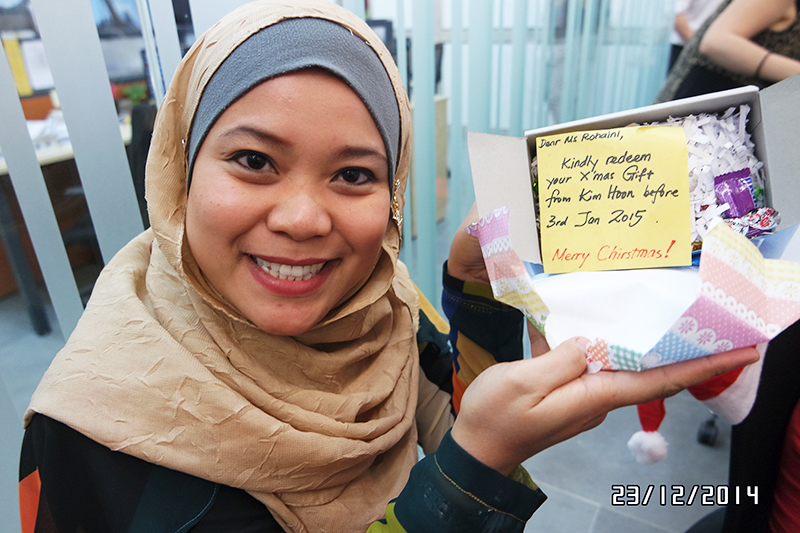 Dear Ms Rohaini,
Kindly redeem
your X'mas Gift
from Kim Hoon before
3rd Jan 2015.
Merry Chirstmas!
23/12/2014